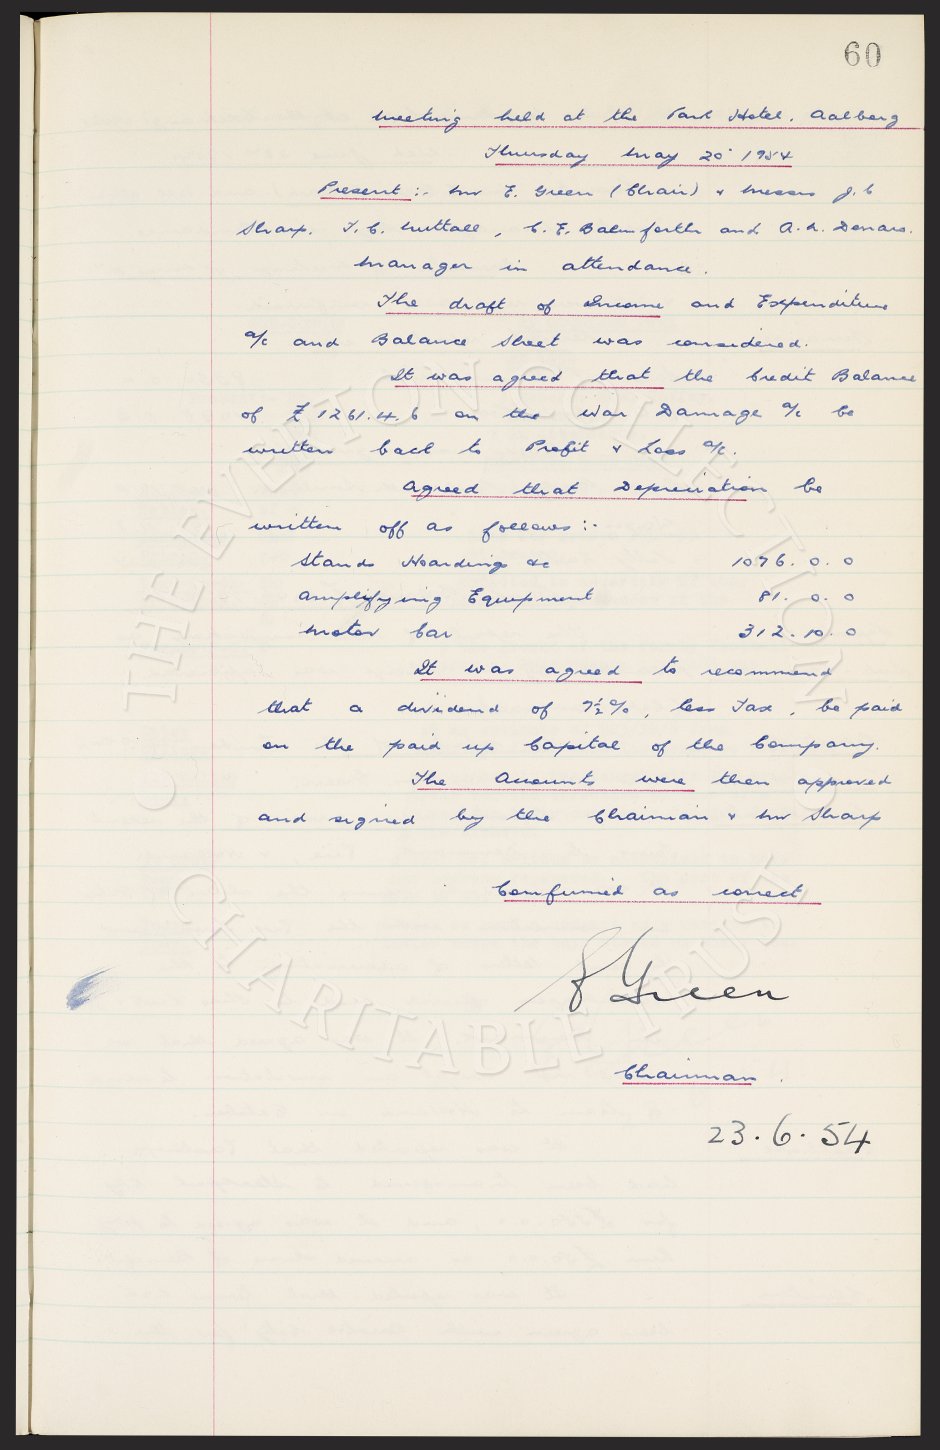 60
Meeting held at the Park Hotel. Aalborg
Thursday May 20 1954
Present :- Mr E. Green (Chair) & Messrs J. C
Sharp. T. C. Nuttall, C. E. Balmforth and A. L. Denaro.
Manager in attendance.
The draft of Income and Expenditure
a/c and Balance Sheet was considered.
It was agreed that the Credit Balance
of £1261.4.6 on the War Damage a/c be
written back to Profit & Loss a/c.
Agreed that Depreciation be
written off as follows :-
Stands Hoardings &c 1076. 0. 0
Amplifying Equipment 81. 0. 0
Motor Car 312. 10. 0
It was agreed to recommend
that a dividend of 7½%, less Tax, be paid
on the paid up Capital of the Company.
The Accounts were then approved
and signed by the Chairman & Mr Sharp
Confirmed as correct
E Green
Chairman.
23.6.54
© THE EVERTON COLLECTION
CHARITABLE TRUST